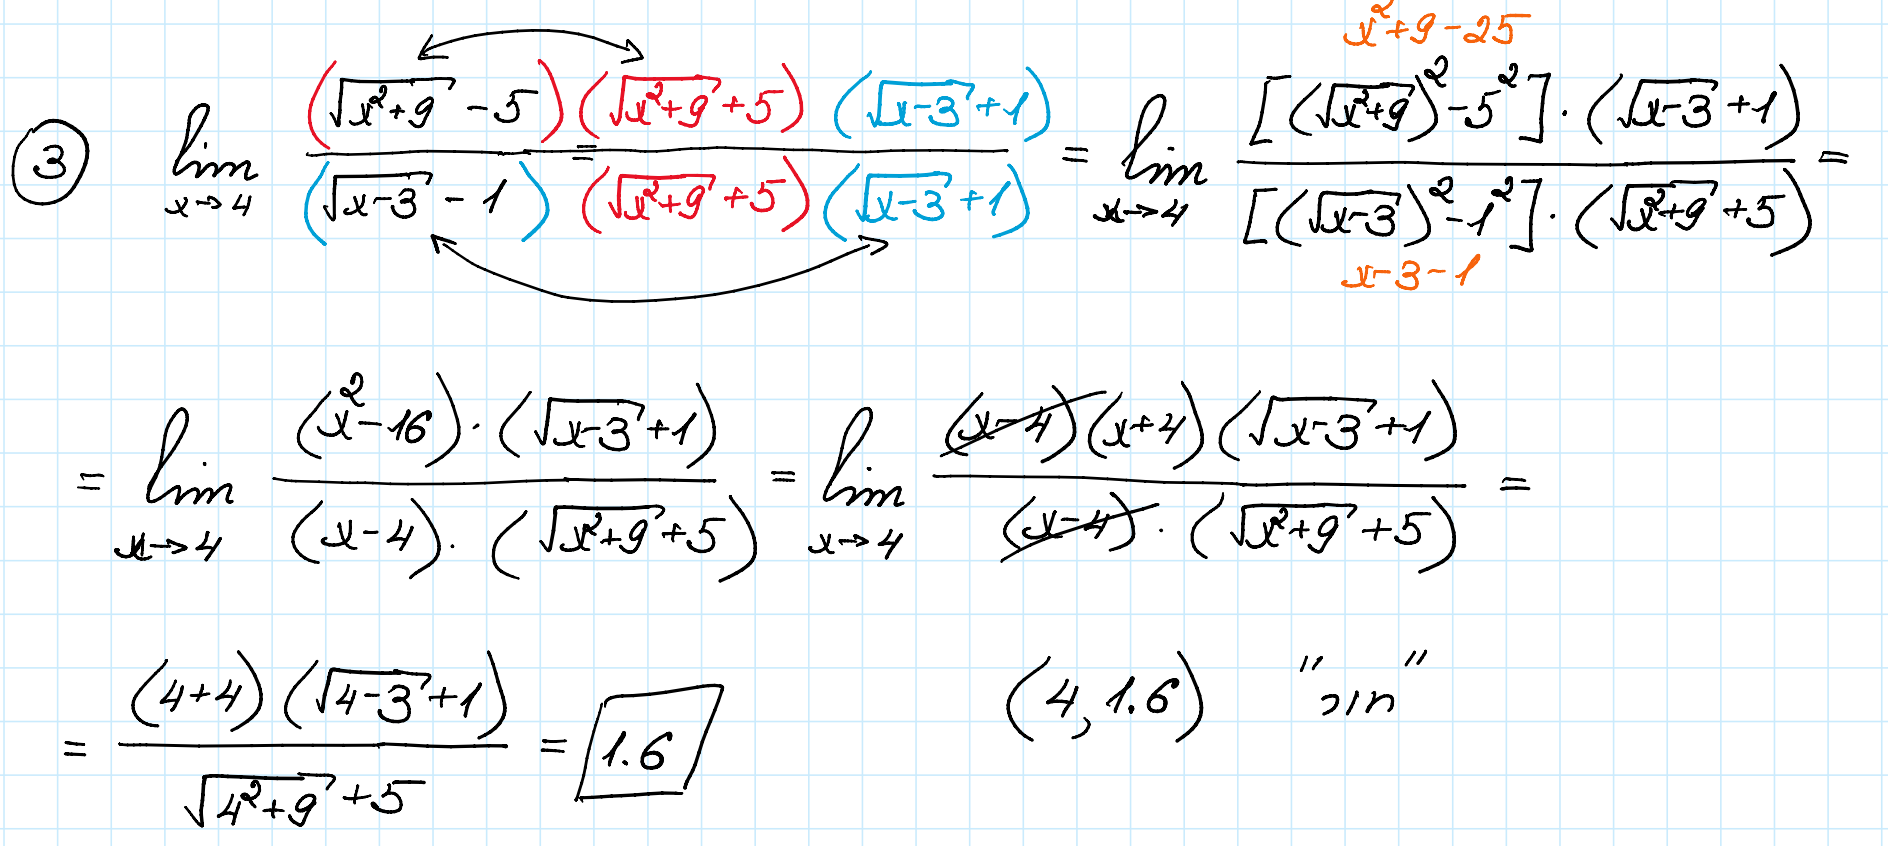 ③ lim x→4 (√(x²+9) - 5)(√(x²+9) + 5)(√(x-3) + 1) / (√(x-3) - 1)(√(x²+9) + 5)(√(x-3) + 1) = lim x→4 [(√(x²+9))² - 5²]·(√(x-3) + 1) / [(√(x-3))² - 1²]·(√(x²+9) + 5) =
x²+9-25
x-3-1
= lim x→4 (x²-16)·(√(x-3) + 1) / (x-4)·(√(x²+9) + 5) = lim x→4 (x-4)(x+4)(√(x-3) + 1) / (x-4)·(√(x²+9) + 5) =
= (4+4)(√(4-3) + 1) / √(4²+9) + 5 = 1.6
(4, 1.6) "חור"